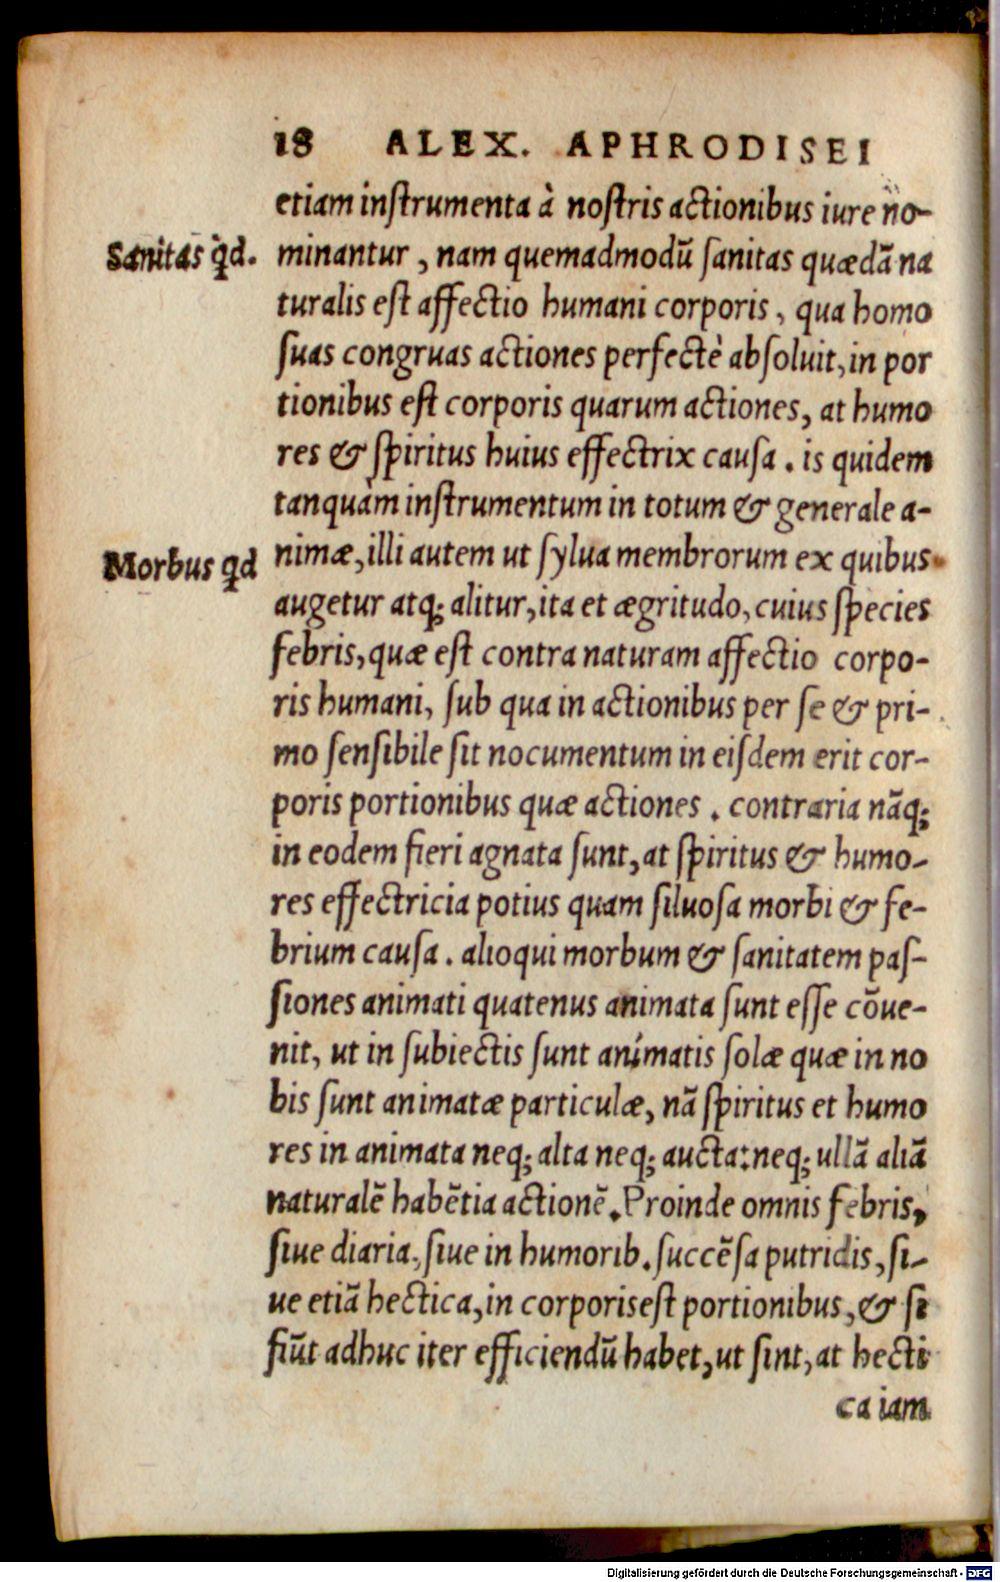 18 ALEX. APHRODISEI
etiam inſtrumenta à noſtris actionibus iure no-
Sanitas qd. minantur, nam quemadmodū ſanitas quædā na
turalis eſt affectio humani corporis, qua homo
ſuas congruas actiones perfectè abſoluit, in por
tionibus eſt corporis quarum actiones, at humo
res & ſpiritus huius effectrix cauſa. is quidem
tanquàm inſtrumentum in totum & generale a-
Morbus qd nimæ, illi autem ut ſylua membrorum ex quibus
augetur atq; alitur, ita et ægritudo, cuius ſpecies
febris, quæ eſt contra naturam affectio corpo-
ris humani, ſub qua in actionibus per ſe & pri-
mo ſenſibile ſit nocumentum in eiſdem erit cor-
poris portionibus quæ actiones. contraria nāq;
in eodem fieri agnata ſunt, at ſpiritus & humo-
res effectricia potius quam ſiluoſa morbi & fe-
brium cauſa. alioqui morbum & ſanitatem paſ-
ſiones animati quatenus animata ſunt eſſe cōue-
nit, ut in ſubiectis ſunt animatis ſolæ quæ in no
bis ſunt animatæ particulæ, nā ſpiritus et humo
res in animata neq; alta neq; aucta: neq; ullā aliā
naturalē habētia actionē. Proinde omnis febris,
ſiue diaria, ſiue in humorib. ſuccēſa putridis, ſi-
ue etiā hectica, in corporis eſt portionibus, & ſi
fiūt adhuc iter efficiendū habet, ut ſint, at hecti
ca iam
Digitalisierung gefördert durch die Deutsche Forschungsgemeinschaft - DFG